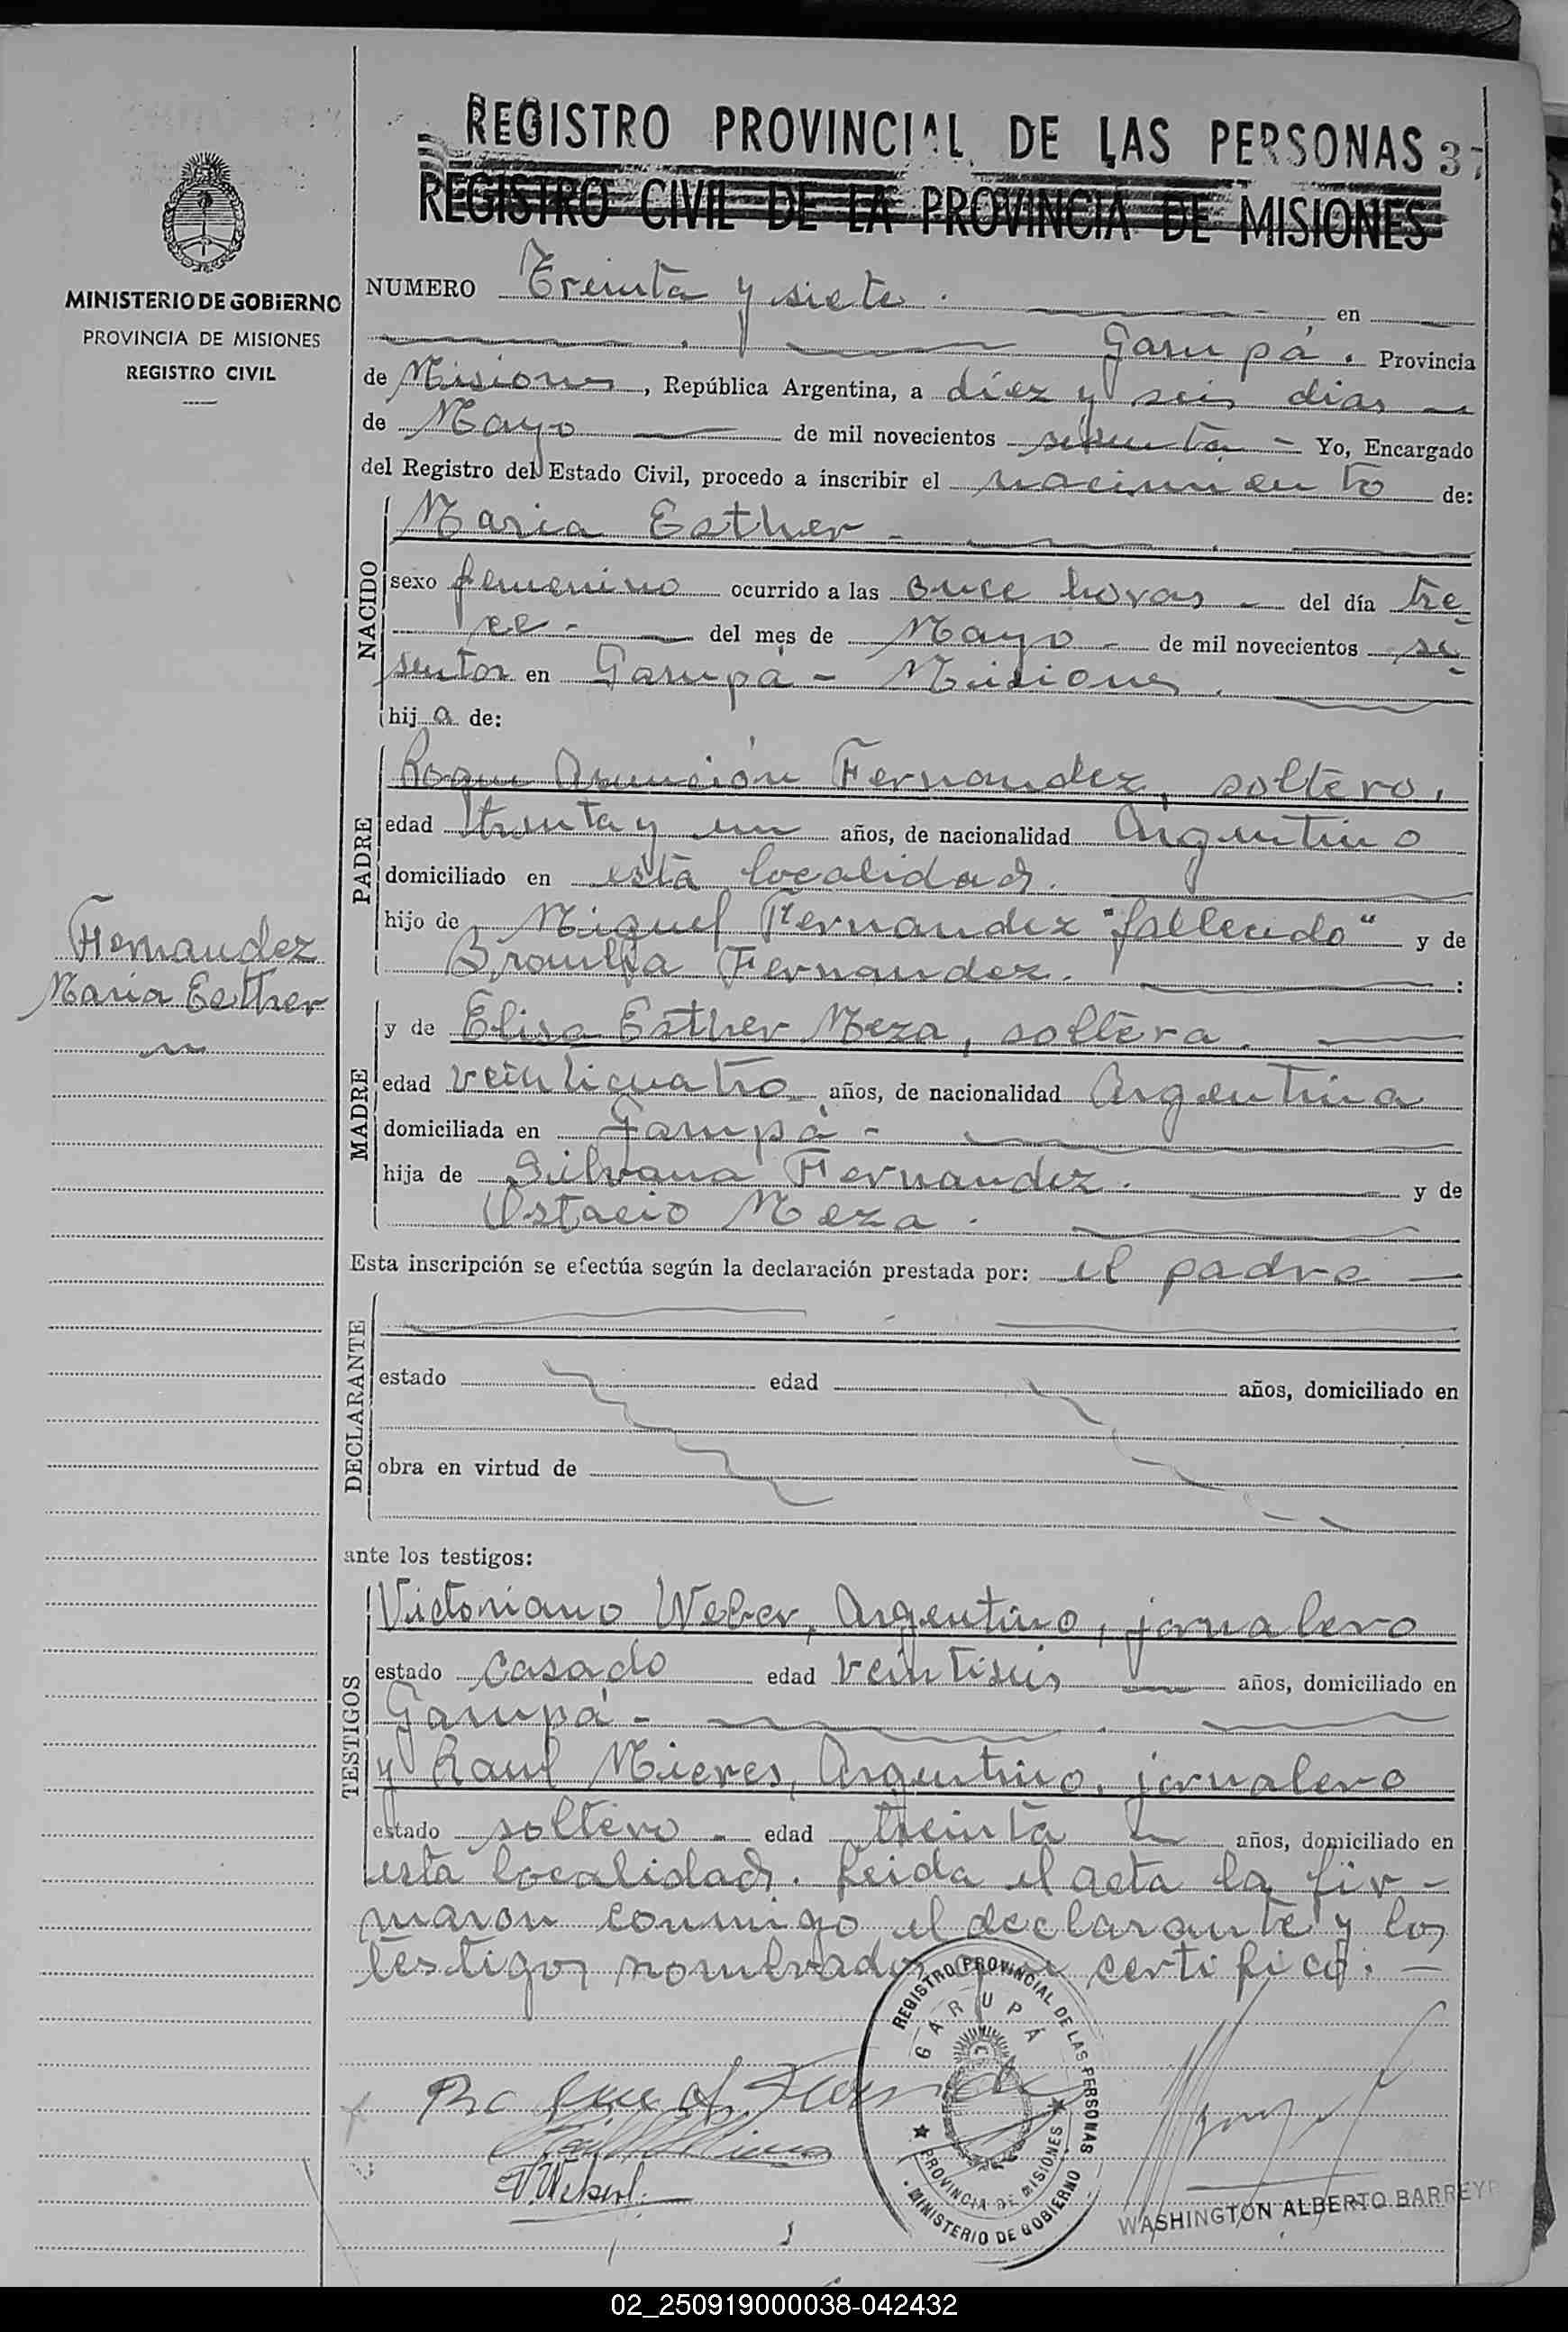 REGISTRO PROVINCIAL DE LAS PERSONAS 37
REGISTRO CIVIL DE LA PROVINCIA DE MISIONES
MINISTERIO DE GOBIERNO
PROVINCIA DE MISIONES
REGISTRO CIVIL
NUMERO Treinta y siete. en
Garupá. Provincia
de Misiones, República Argentina, a diez y seis dias
de Mayo de mil novecientos sesenta - Yo, Encargado
del Registro del Estado Civil, procedo a inscribir el nacimiento de:
NACIDO
Maria Esther -
sexo femenino ocurrido a las once horas - del día tre-
ce - del mes de Mayo - de mil novecientos se-
senta en Garupá - Misiones.
hija de:
PADRE
Roque Asunción Fernandez, soltero,
edad treinta y un años, de nacionalidad Argentino
domiciliado en esta localidad.
hijo de Miguel Fernandez "fallecido" y de
Fernandez. :
Fernandez
Maria Esther
MADRE
y de Elisa Esther Meza, soltera.
edad veinticuatro años, de nacionalidad Argentina
domiciliada en Garupá -
hija de Silvana Fernandez. y de
Ostacio Meza.
Esta inscripción se efectúa según la declaración prestada por: el padre
DECLARANTE
estado edad años, domiciliado en
obra en virtud de
ante los testigos:
TESTIGOS
Victoriano Weber, Argentino, jornalero
estado casado edad veintiseis años, domiciliado en
Garupá -
y Raul Mieres, Argentino, jornalero
estado soltero - edad treinta años, domiciliado en
esta localidad. Leida el acta la fir-
maron conmigo el declarante y los
testigos nombrados que certifico. -
REGISTRO PROVINCIAL DE LAS PERSONAS
GARUPÁ
PROVINCIA DE MISIONES
MINISTERIO DE GOBIERNO
V. Weber
WASHINGTON ALBERTO BARREYR
02_250919000038-042432